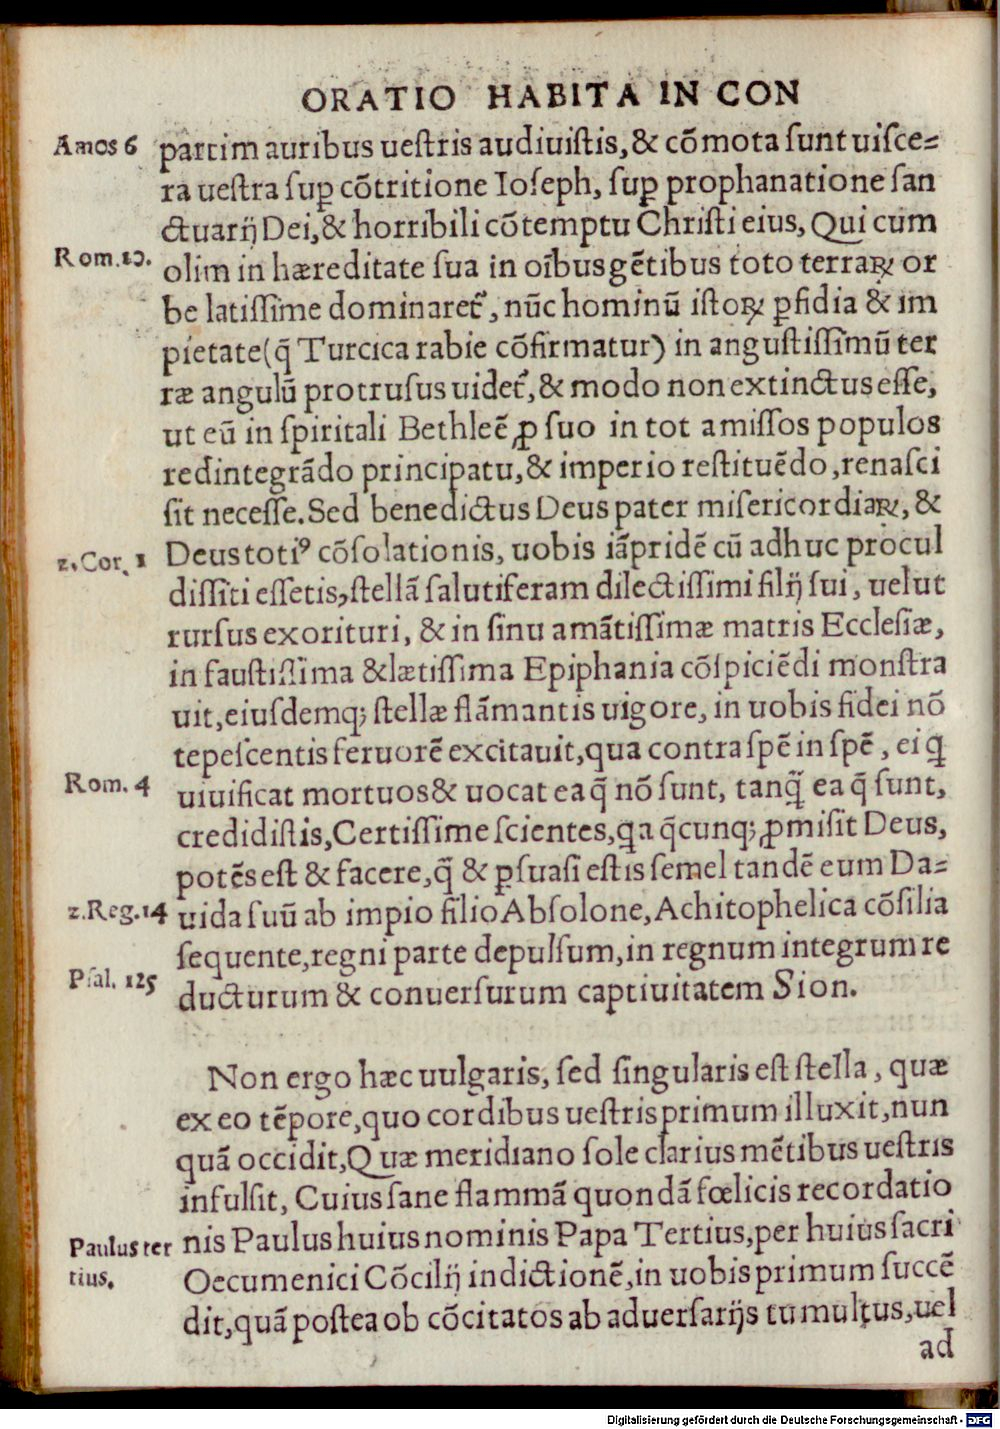 ORATIO HABITA IN CON
Amos 6
partim auribus uestris audiuistis, & cõmota sunt uisce-
ra uestra suꝑ cõtritione Ioseph, suꝑ prophanatione san
ctuarij Dei, & horribili cõtemptu Christi eius, Qui cum
Rom. 10.
olim in hæreditate sua in oĩbus gẽtibus toto terraꝝ or
be latissime dominaret᷑, nũc hominũ istoꝝ ꝑfidia & im
pietate (q̃ Turcica rabie cõfirmatur) in angustissimũ ter
ræ angulũ protrusus uidet᷑, & modo non extinctus esse,
ut eũ in spiritali Bethleẽ ꝓ suo in tot amissos populos
redintegrãdo principatu, & imperio restituẽdo, renasci
sit necesse. Sed benedictus Deus pater misericordiaꝝ, &
2. Cor. 1
Deus totiꝰ cõsolationis, uobis iãpridẽ cũ adhuc procul
dissiti essetis, stellã salutiferam dilectissimi filij sui, uelut
rursus exorituri, & in sinu amãtissimæ matris Ecclesiæ,
in faustissima & lætissima Epiphania cõspiciẽdi monstra
uit, eiusdemq; stellæ flãmantis uigore, in uobis fidei nõ
tepescentis feruorẽ excitauit, qua contra spẽ in spẽ, ei q̃
Rom. 4
uiuificat mortuos & uocat ea q̃ nõ sunt, tanq̃ ea q̃ sunt,
credidistis, Certissime scientes, qa q̃cunq; ꝓmisit Deus,
potẽs est & facere, q̃ & ꝑsuasi estis semel tandẽ eum Da-
2. Reg. 14
uida suũ ab impio filio Absolone, Achitophelica cõsilia
sequente, regni parte depulsum, in regnum integrum re
Psal. 125
ducturum & conuersurum captiuitatem Sion.
Non ergo hæc uulgaris, sed singularis est stella, quæ
ex eo tẽpore, quo cordibus uestris primum illuxit, nun
quã occidit, Quæ meridiano sole clarius mẽtibus uestris
infulsit, Cuius sane flammã quondã fœlicis recordatio
Paulus ter
tius.
nis Paulus huius nominis Papa Tertius, per huius sacri
Oecumenici Cõcilij indictionẽ, in uobis primum succẽ
dit, quã postea ob cõcitatos ab aduersarijs tumultus, uel
ad
Digitalisierung gefördert durch die Deutsche Forschungsgemeinschaft - DFG